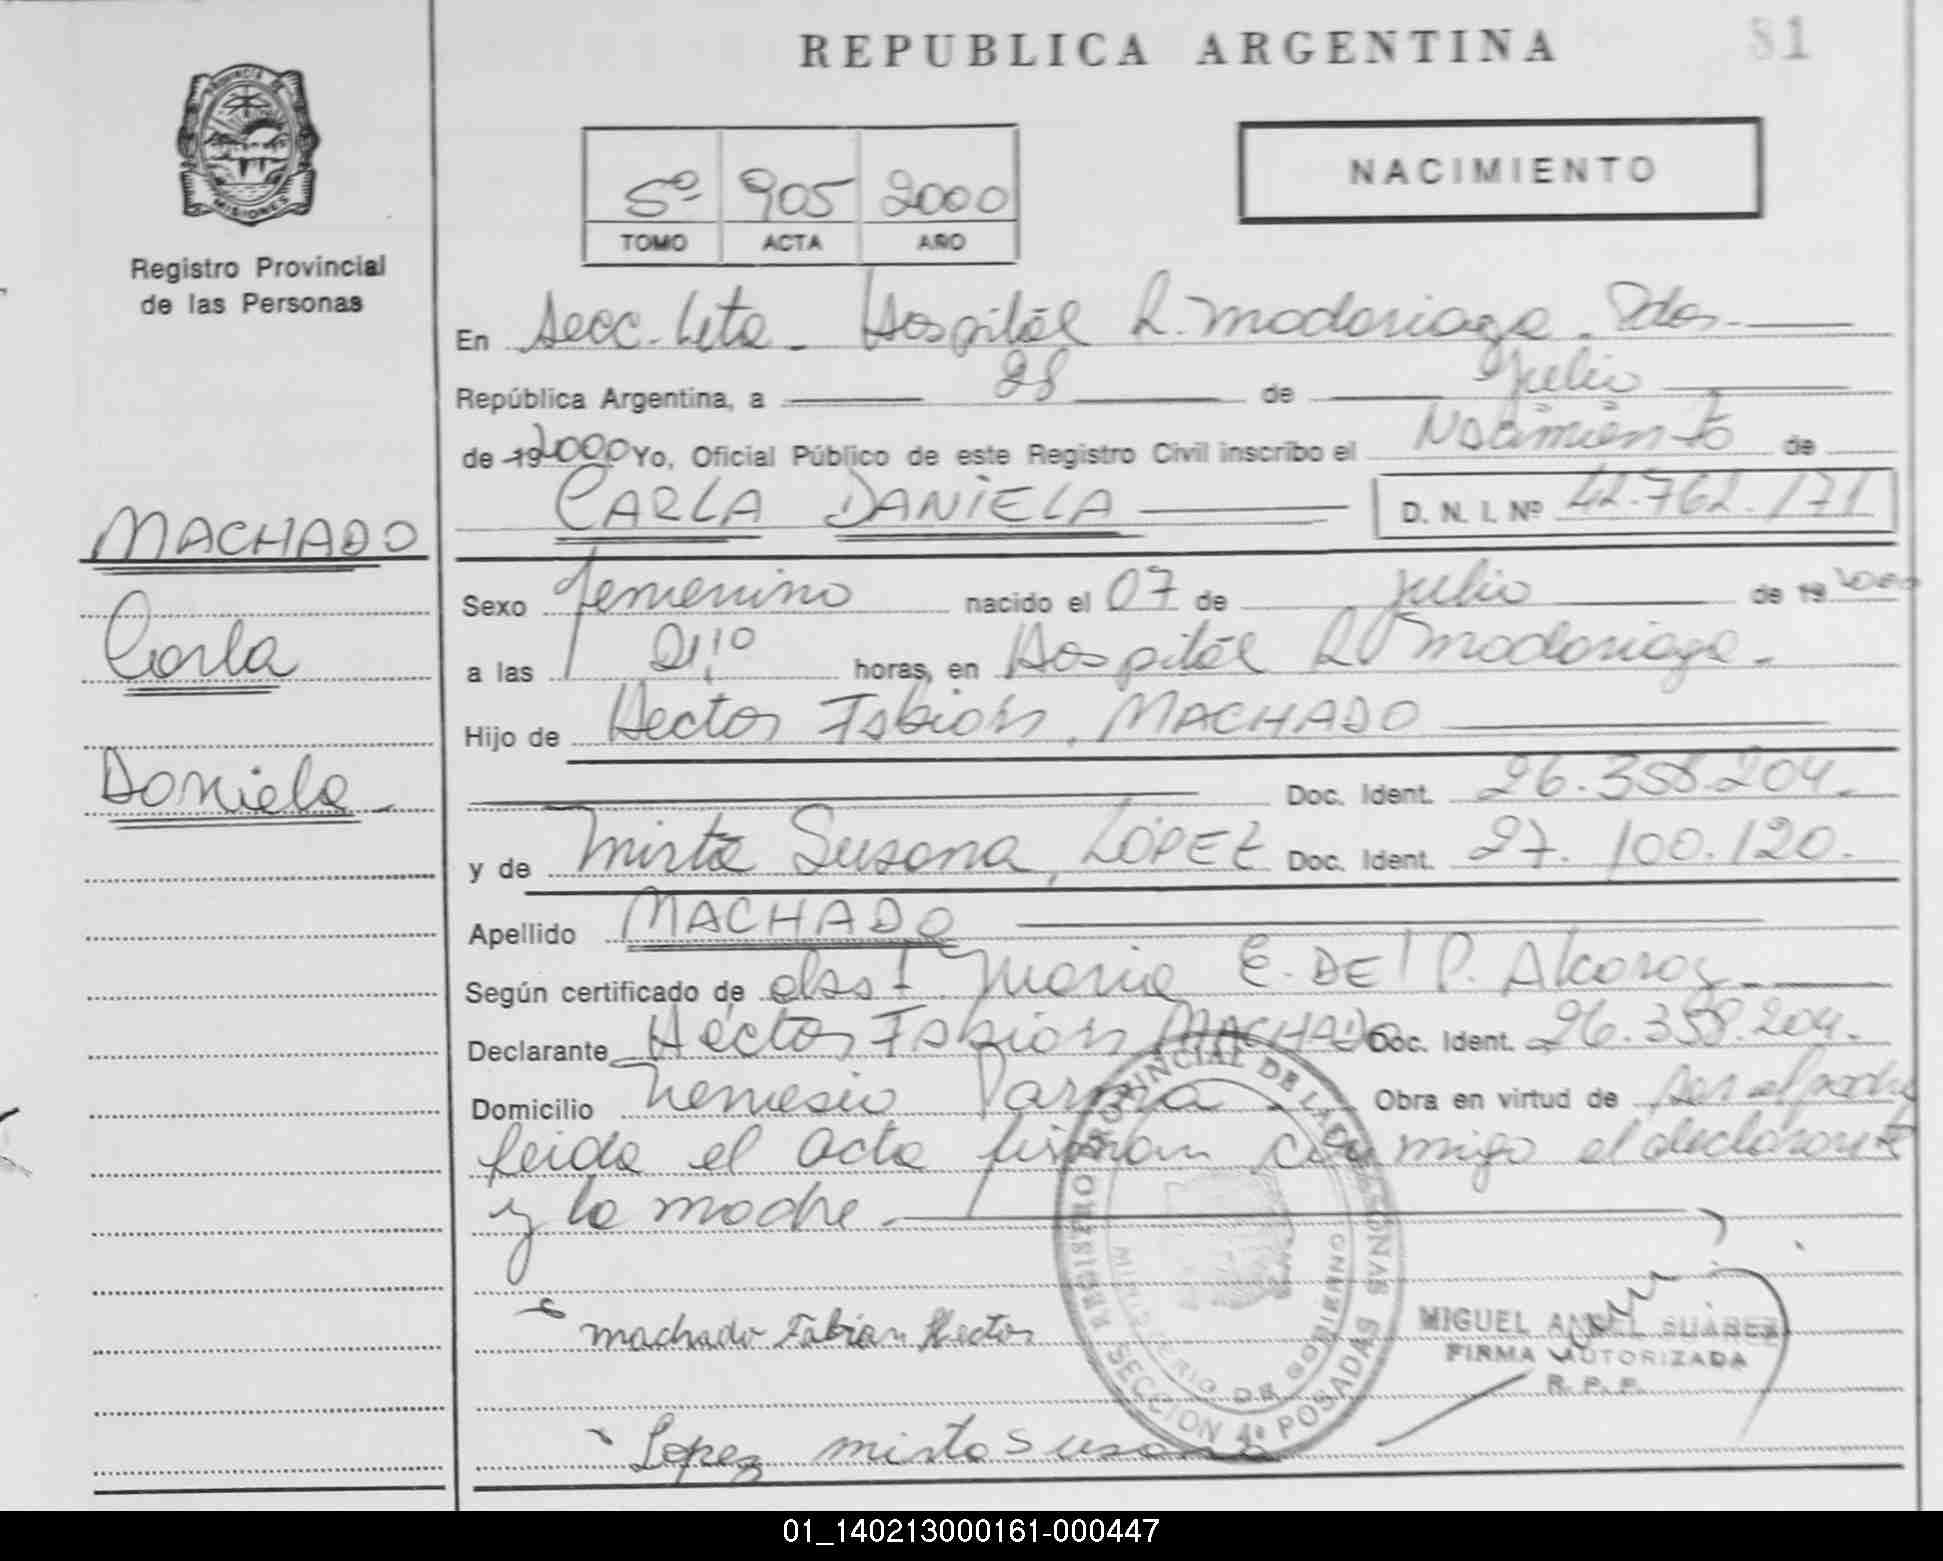 REPUBLICA ARGENTINA
81
PROVINCIA DE
MISIONES
Registro Provincial
de las Personas
5º 905 2000
TOMO ACTA AÑO
NACIMIENTO
En Secc. 4ta. Hospital R. Madariaga. Pdas.
República Argentina, a 28 de Julio
de 19 2000 Yo, Oficial Público de este Registro Civil inscribo el Nacimiento de
CARLA DANIELA D. N. I. Nº 42.762.171
MACHADO
Carla
Daniela
Sexo femenino nacido el 07 de julio de 19 2000
a las 21,10 horas, en Hospital R. Madariaga.
Hijo de Hector Fabian, MACHADO
Doc. Ident. 26.358.204.
y de Mirta Susana, LÓPEZ Doc. Ident. 27.100.120.
Apellido MACHADO
Según certificado de obst Maria E. DEl P. Alcaraz
Declarante Héctor Fabián MACHADO Doc. Ident. 26.358.204.
Domicilio Nemesio Parma Obra en virtud de ser el padre
leida el acta firman conmigo el declarante
y la madre
REGISTRO PROVINCIAL DE LAS PERSONAS
MINISTERIO DE GOBIERNO
SECCION 4ª POSADAS
machado Fabian Hector
MIGUEL ANGEL SUAREZ
FIRMA AUTORIZADA
R. P. P.
Lopez mirta Susana
01_140213000161-000447